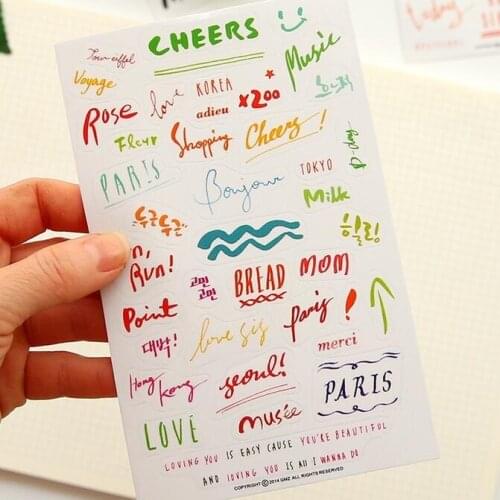 CHEERS
Tour eiffel
Voyage
Music
Rose
love
KOREA
adieu
x200
Fleur
Shopping
Cheers!
D-day
PARIS
Bonjour
TOKYO
Milk
두근두근
힐링!
Run!
고민
고민
BREAD
MOM
Point
대박!
love sis
paris!
merci
Hong
Kong
seoul!
PARIS
LOVE
musée
LOVING YOU IS EASY CAUSE YOU'RE BEAUTIFUL
AND LOVING YOU IS ALL I WANNA DO
COPYRIGHT © 2014 GMZ ALL RIGHTS RESERVED
today